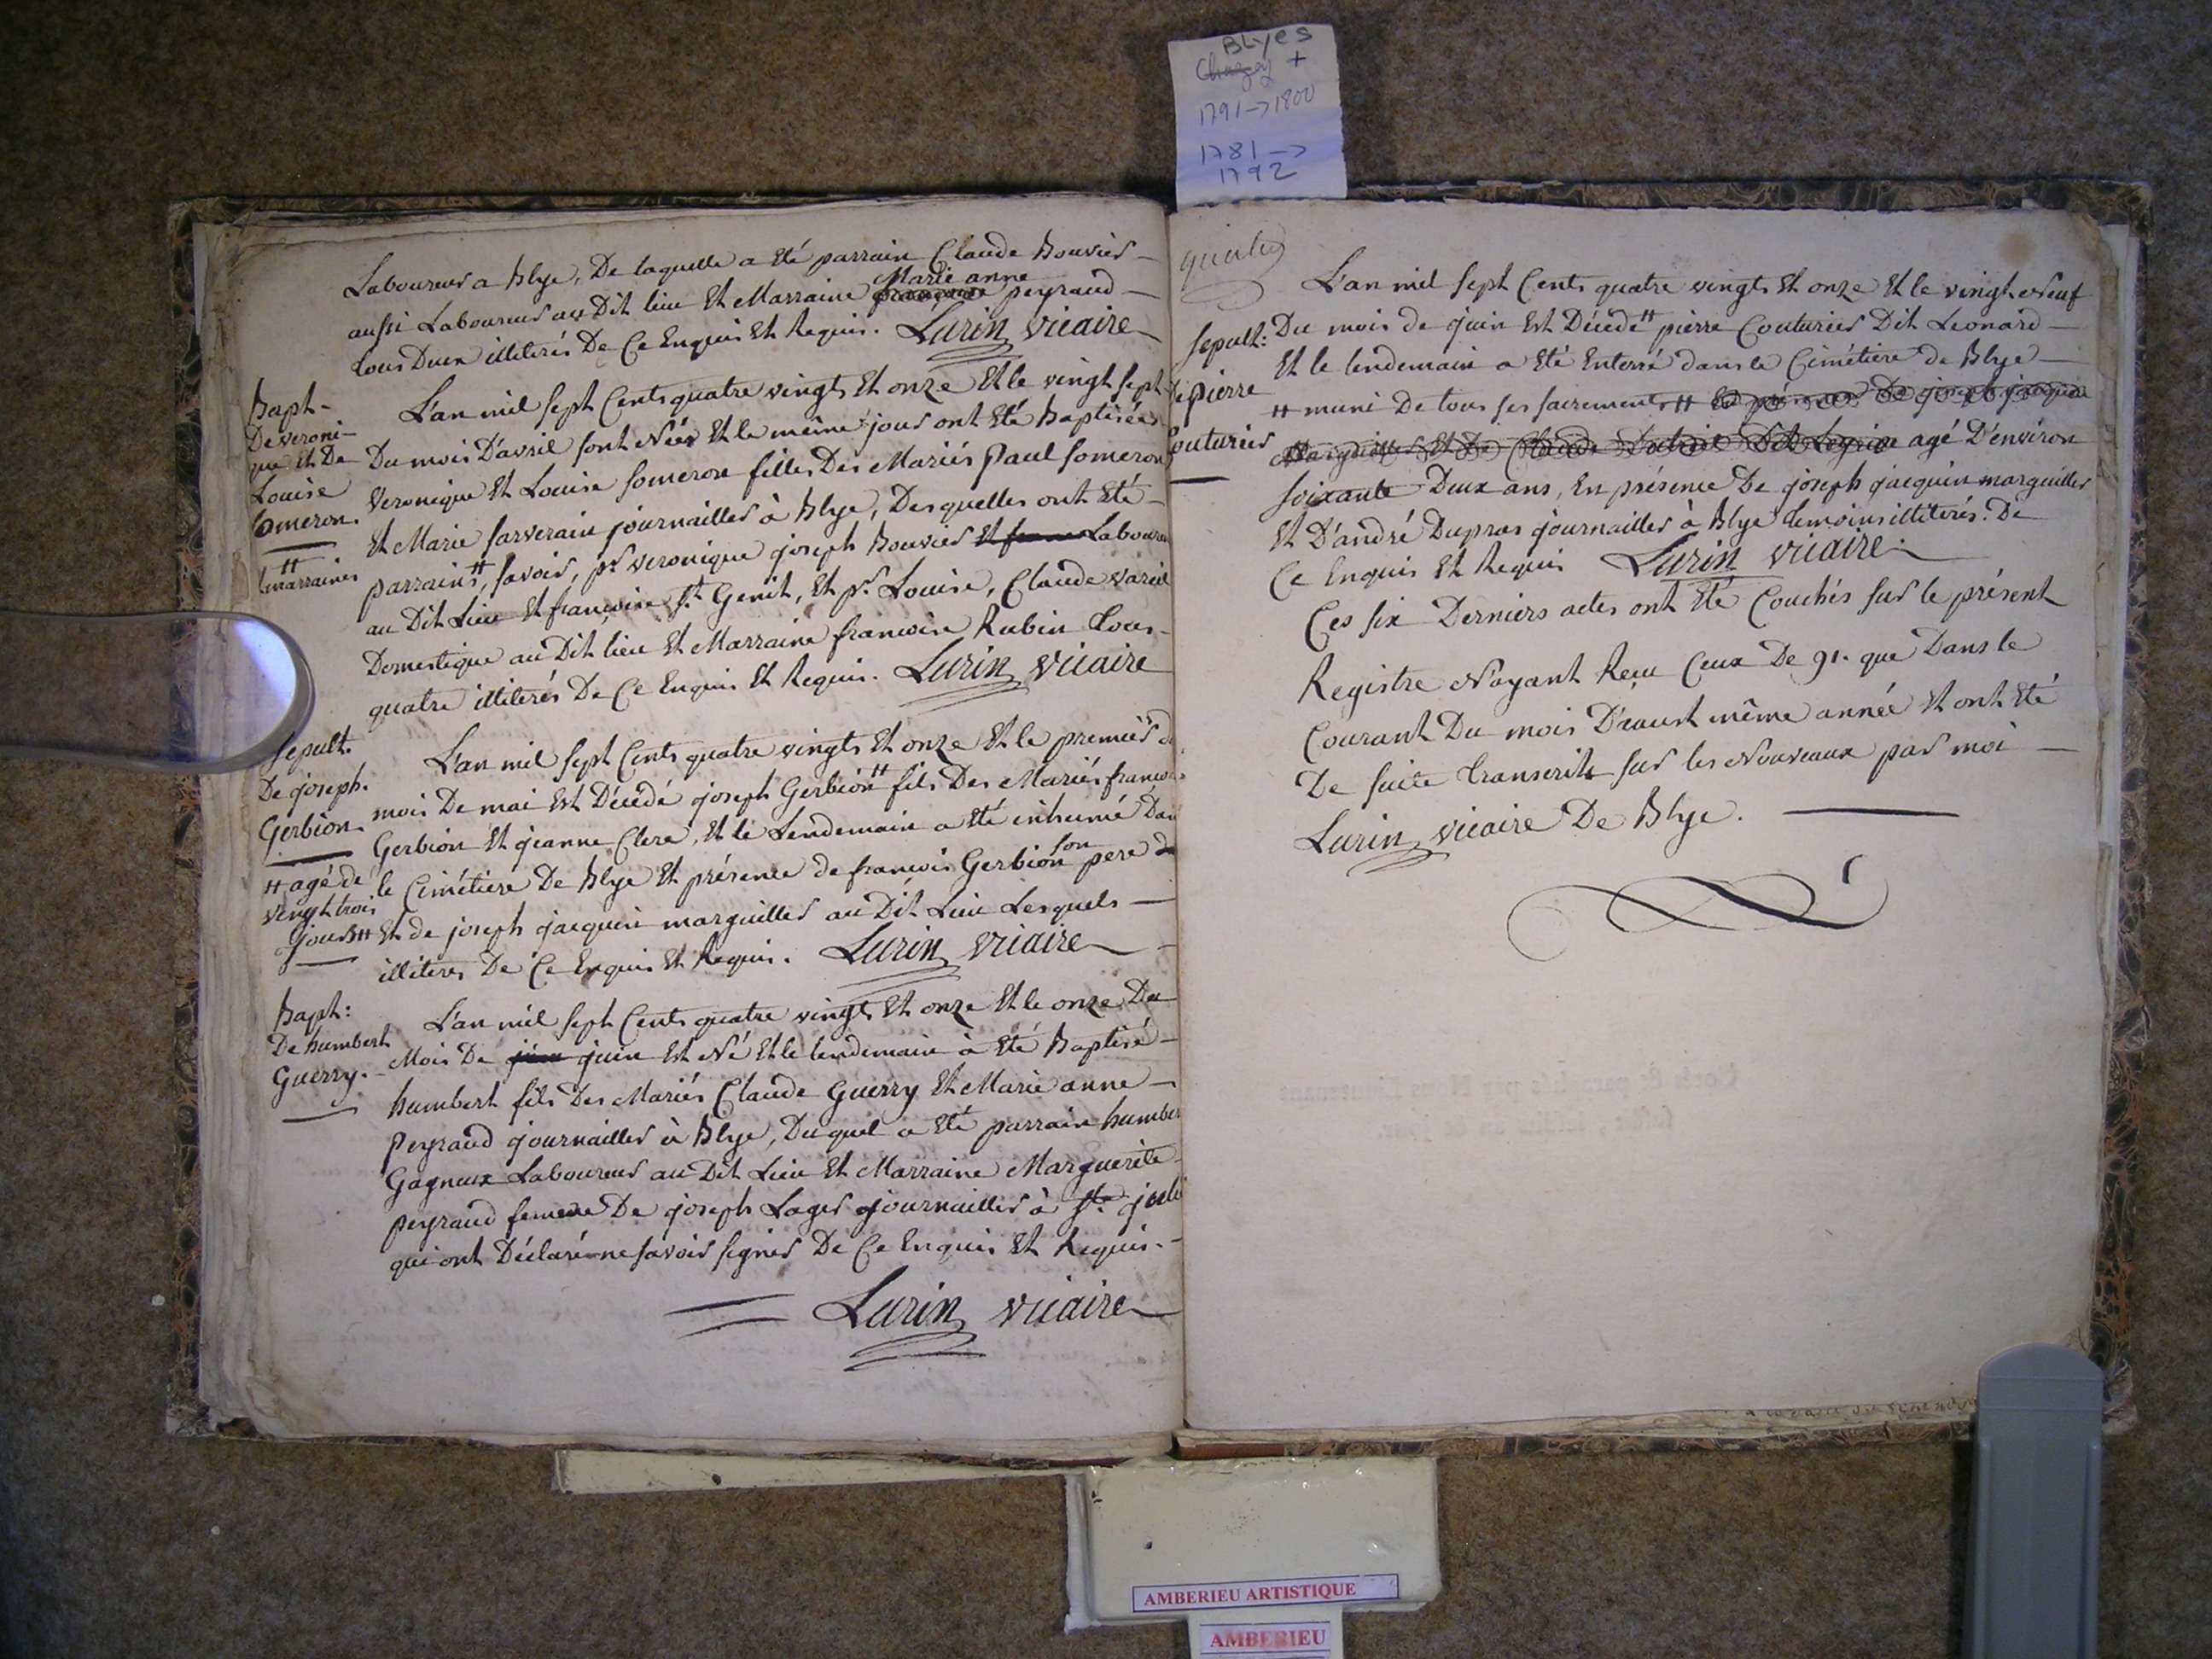 BLyes
Chazey +
1791->1800
1781->
1792
Laboureur a Blye, De laquelle a Eté parrain Claude Bouvier
aussi Laboureur au Dit lieu Et Marraine françoise Marie anne peyraud
tous Deux illiterés De Ce Enquis Et Requis. Lurin vicaire
Bapt-
De veroni-
que Et De
Louise
Someron.
L'an mil sept Cents quatre vingts Et onze Et le vingt sept
Du mois D'avril sont Nées Et le même jour ont Eté Baptisées
Veronique Et Louise Someron filles Des Mariés Paul Someron
Et Marie Sarverain journailler à Blye, Desquelles ont Eté
parrains, savoir, pr veronique joseph Bouvier Et Laboureur
au Dit Lieu Et françoise St Genit, Et pr Louise, Claude
Domestique au Dit lieu Et Marraine francoise Rubin tous
quatre illiterés De Ce Enquis Et Requis. Lurin vicaire
Sepult.
De joseph.
Gerbion.
L'an mil sept Cents quatre vingts Et onze Et le premier du
mois De mai Est Décédé joseph Gerbion fils Des Mariés francois
Gerbion Et jeanne Clerc, Et le Lendemain a Eté inhumé Dans
le Cimétiere De Blye Et présence de francois Gerbion son pere
agé de
vingt trois
jours
Et de joseph jacquin marguiller au Dit Lieu Lesquels
illiteres De Ce Enquis Et Requis. Lurin vicaire
Bapt:
De humbert
Guerry.
L'an mil sept Cents quatre vingts Et onze Et le onze Du
Mois De juin Est Né Et le lendemain à Eté Baptisé
humbert fils Des Mariés Claude Guerry Et Marie anne
Peyraud journailler à Blye, Duquel a Eté parrain humbert
Gagneux Laboureur au Dit Lieu Et Marraine Marguerite
peyraud femme De joseph Lager journailler à Ste julie
qui ont Déclaré ne savoir signer De Ce Enquis Et Requis.
Lurin vicaire
Sepult:
De pierre
Couturier
L'an mil sept Cents quatre vingts Et onze Et le vingt Neuf
Du mois de juin Est Décédé pierre Couturier Dit Leonard
Et le lendemain a Eté Enterré dans le Cimétiere de Blye
muni De tous ses sacrements Et présence De joseph jacquin
Marguiller Et De Claude agé D'environ
soixante Deux ans, En présence De joseph jacquin marguiller
Et D'andré Dupras journailler à Blye temoins illiterés. De
Ce Enquis Et Requis Lurin vicaire.
Ces six Derniers actes ont Eté Couchés sur le présent
Registre N'ayant Reçu Ceux De 91. que Dans le
Courant Du mois D'aoust même année Et ont Eté
De suite transcrits sur les Nouveaux par moi
Lurin vicaire De Blye.
AMBERIEU ARTISTIQUE
AMBERIEU